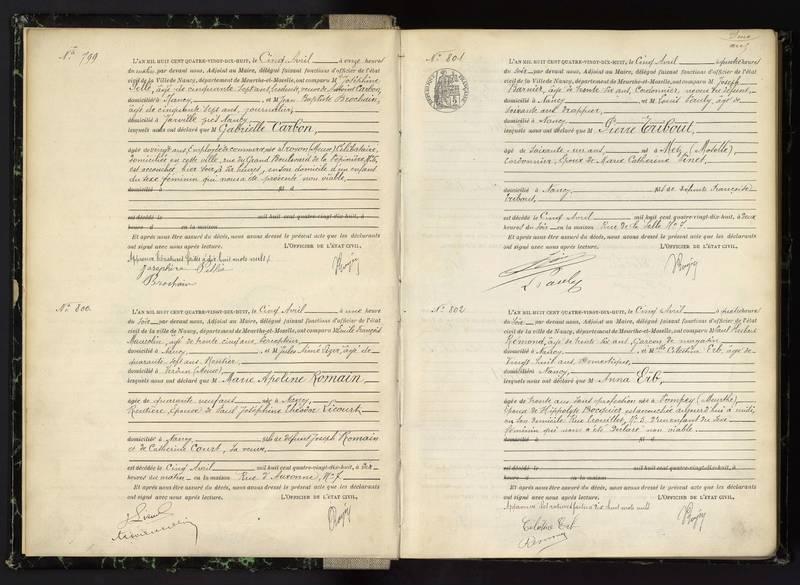 No 799
L'AN MIL HUIT CENT QUATRE-VINGT-DIX-HUIT, le Cinq Avril à onze heures
du matin par devant nous, Adjoint au Maire, délégué faisant fonctions d'officier de l'état
civil de la Ville de Nancy, département de Meurthe-et-Moselle, ont comparu M Joséphine
âgée de cinquante sept ans, veuve de Carbon,
domiciliée à Nancy, et M Jean Baptiste Brochain,
âgé de cinquante sept ans, journalier,
domicilié à Jarville près Nancy
lesquels nous ont déclaré que M Gabrielle Carbon,
âgée de vingt ans, Employée de commerce, née à (Meuse) Célibataire,
domiciliée en cette ville, rue du Grand Boulevard de la Pépinière,
est accouchée hier soir, à dix heures, en son domicile d'un enfant
du sexe féminin qui nous a été présenté non viable.
domicilié à fil d
est décédé le mil huit cent quatre-vingt-dix-huit, à
heure d en la maison
Et après nous être assuré du décès, nous avons dressé le présent acte que les déclarants
ont signé avec nous après lecture. L'OFFICIER DE L'ÉTAT CIVIL,
Brochain
No 800
L'AN MIL HUIT CENT QUATRE-VINGT-DIX-HUIT, le Cinq Avril à une heure
du Soir par devant nous, Adjoint au Maire, délégué faisant fonctions d'officier de l'état
civil de la ville de Nancy, département de Meurthe-et-Moselle, ont comparu M Emile François
âgé de trente cinq ans,
domicilié à Nancy, et M Jules René âgé de
quarante sept ans, Rentier,
domicilié à Verdun (Meuse)
lesquels nous ont déclaré que M Marie Apoline Romain,
âgée de quarante neuf ans née à Nancy,
Rentière, Epouse de Paul Joséphine Théodore Licourt
domiciliée à Nancy fille de défunt Joseph Romain
et de Catherine Court, sa veuve,
est décédée le Cinq Avril mil huit cent quatre-vingt-dix-huit, à dix
heures du matin en la maison Rue d'Auxonne, No 7.
Et après nous être assuré du décès, nous avons dressé le présent acte que les déclarants
ont signé avec nous après lecture. L'OFFICIER DE L'ÉTAT CIVIL,
No 801
L'AN MIL HUIT CENT QUATRE-VINGT-DIX-HUIT, le Cinq Avril à quatre heures
du Soir par devant nous, Adjoint au Maire, délégué faisant fonctions d'officier de l'état
civil de la Ville de Nancy, département de Meurthe-et-Moselle, ont comparu M Joseph
Barnier, âgé de trente six ans, Cordonnier, neveu du défunt,
domicilié à Nancy, et M Louis Pauly, âgé de
soixante ans,
domicilié à Nancy
lesquels nous ont déclaré que M Pierre Tribout,
âgé de soixante un ans né à Metz (Moselle),
Cordonnier, Epoux de Marie Catherine
domicilié à Nancy, fils de défunts François
Tribout,
est décédé le Cinq Avril mil huit cent quatre-vingt-dix-huit, à deux
heures du Soir en la maison Rue de la Salle No 7.
Et après nous être assuré du décès, nous avons dressé le présent acte que les déclarants
ont signé avec nous après lecture. L'OFFICIER DE L'ÉTAT CIVIL,
L Pauly
No 802
L'AN MIL HUIT CENT QUATRE-VINGT-DIX-HUIT, le Cinq Avril à quatre heures
du Soir par devant nous, Adjoint au Maire, délégué faisant fonctions d'officier de l'état
civil de la Ville de Nancy, département de Meurthe-et-Moselle, ont comparu M Paul
Rémond, âgé de trente six ans, Garçon de magasin
domicilié à Nancy, et Melle Célestine Erb, âgée de
Vingt huit ans, Domestique,
domiciliée à Nancy,
lesquels nous ont déclaré que M Anna Erb,
âgée de trente ans, sans profession née à Pompey (Meurthe)
Epouse de Hippolyte Bocquet est accouchée aujourd'hui à midi,
en son domicile Rue No 5, d'un enfant du sexe
féminin qui nous a été déclaré non viable.
domicilié à fil d
est décédé le mil huit cent quatre-vingt-dix-huit, à
heure d en la maison
Et après nous être assuré du décès, nous avons dressé le présent acte que les déclarants
ont signé avec nous après lecture. L'OFFICIER DE L'ÉTAT CIVIL,
Célestine Erb